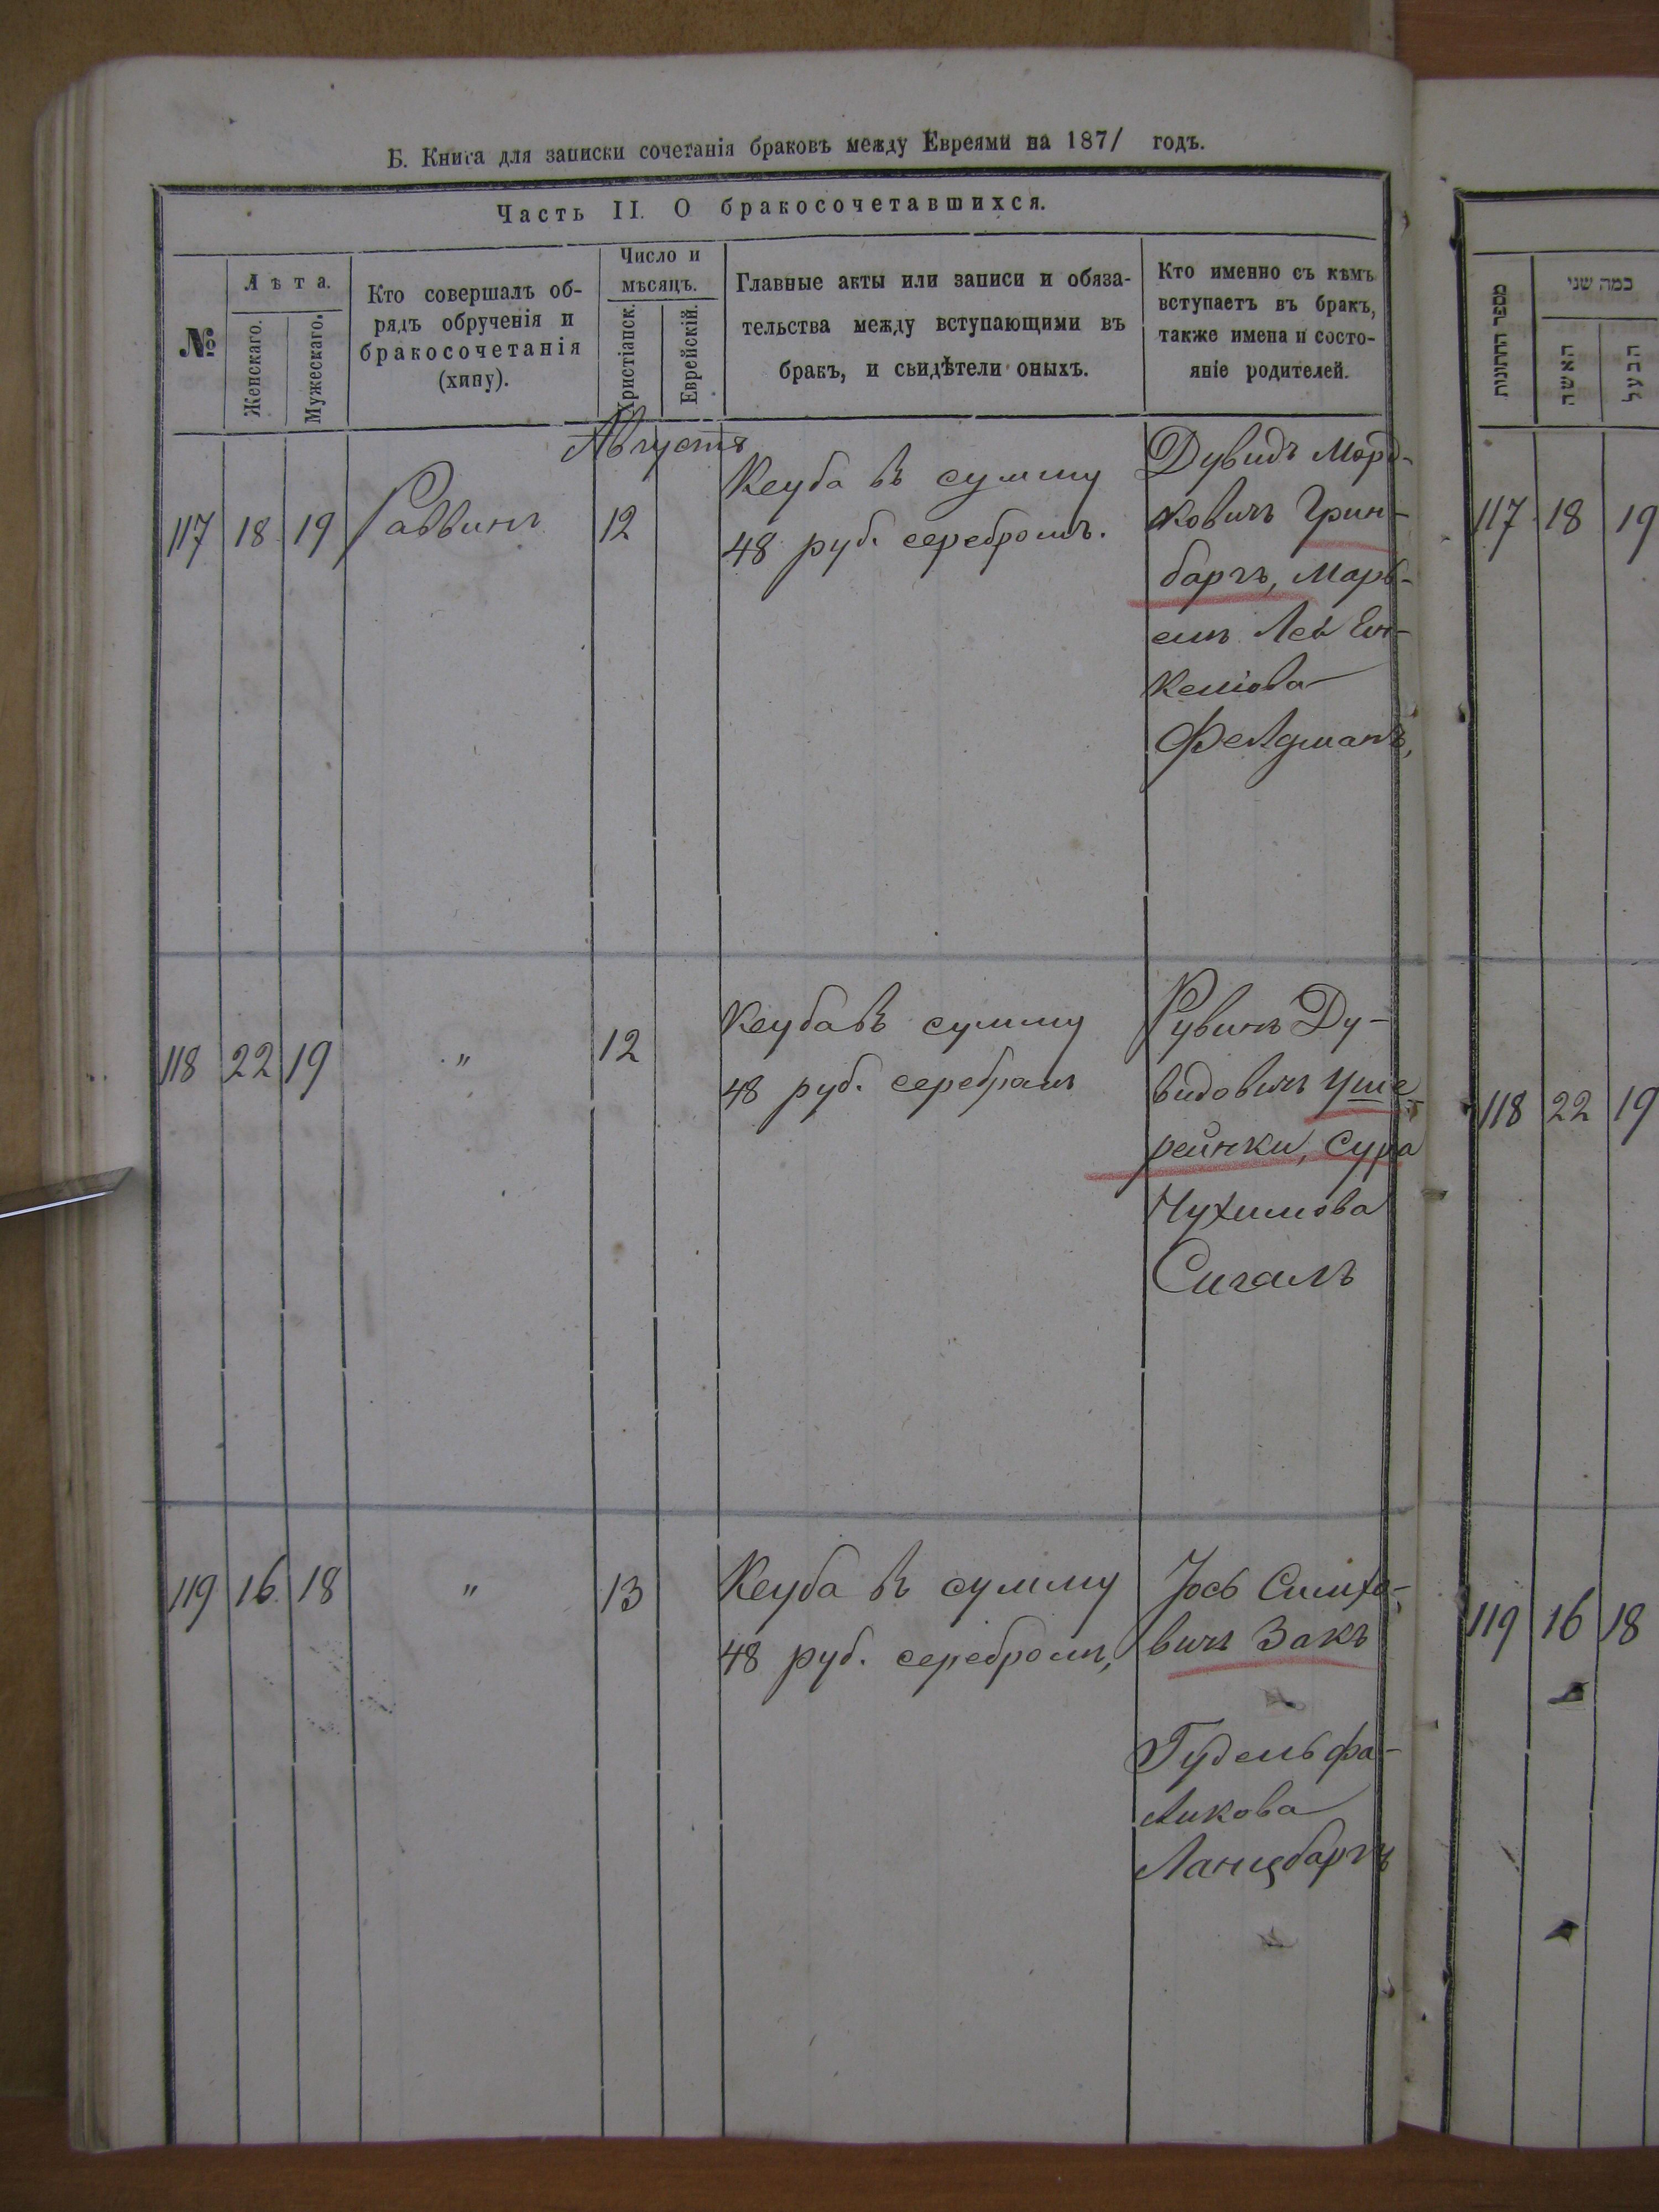 Б. Книга для записки сочетанія браковъ между Евреями на 1871 годъ.
Часть II. О бракосочетавшихся.
№
Лѣта.
Женскаго.
Мужескаго.
Кто совершалъ об-
рядъ обрученія и
бракосочетанія
(хипу).
Число и
мѣсяцъ.
Христіанск.
Еврейскій.
Главные акты или записи и обяза-
тельства между вступающими въ
бракъ, и свидѣтели оныхъ.
Кто именно съ кѣмъ
вступаетъ въ бракъ,
также имена и состо-
яніе родителей.
Августъ
117 18 19 Раввинъ 12
Кеуба въ сумму
48 руб. серебромъ.
Дувидъ Морд-
ковичъ Грин-
баргъ, Марь-
емъ Лея
Фелдманъ,
118 22 19 " 12
Кеуба въ сумму
48 руб. серебромъ
Рувинъ Ду-
видовичъ Уше-
ренки, Сура
Нухимова
Сигалъ
119 16 18 " 13
Кеуба въ сумму
48 руб. серебромъ,
Іось Симхо-
вичъ Закъ
Гудель Фа-
ликова
Ланцбаргъ
מספר החתונות
כמה שני
האשה
הבעל
117 18 19
118 22 19
119 16 18